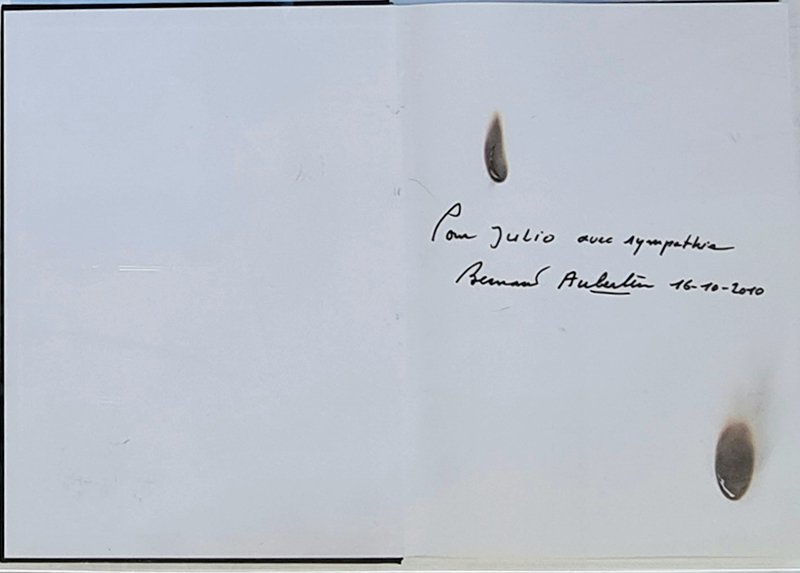 Pour Julio avec sympathie
Bernard Aubertin 16-10-2010